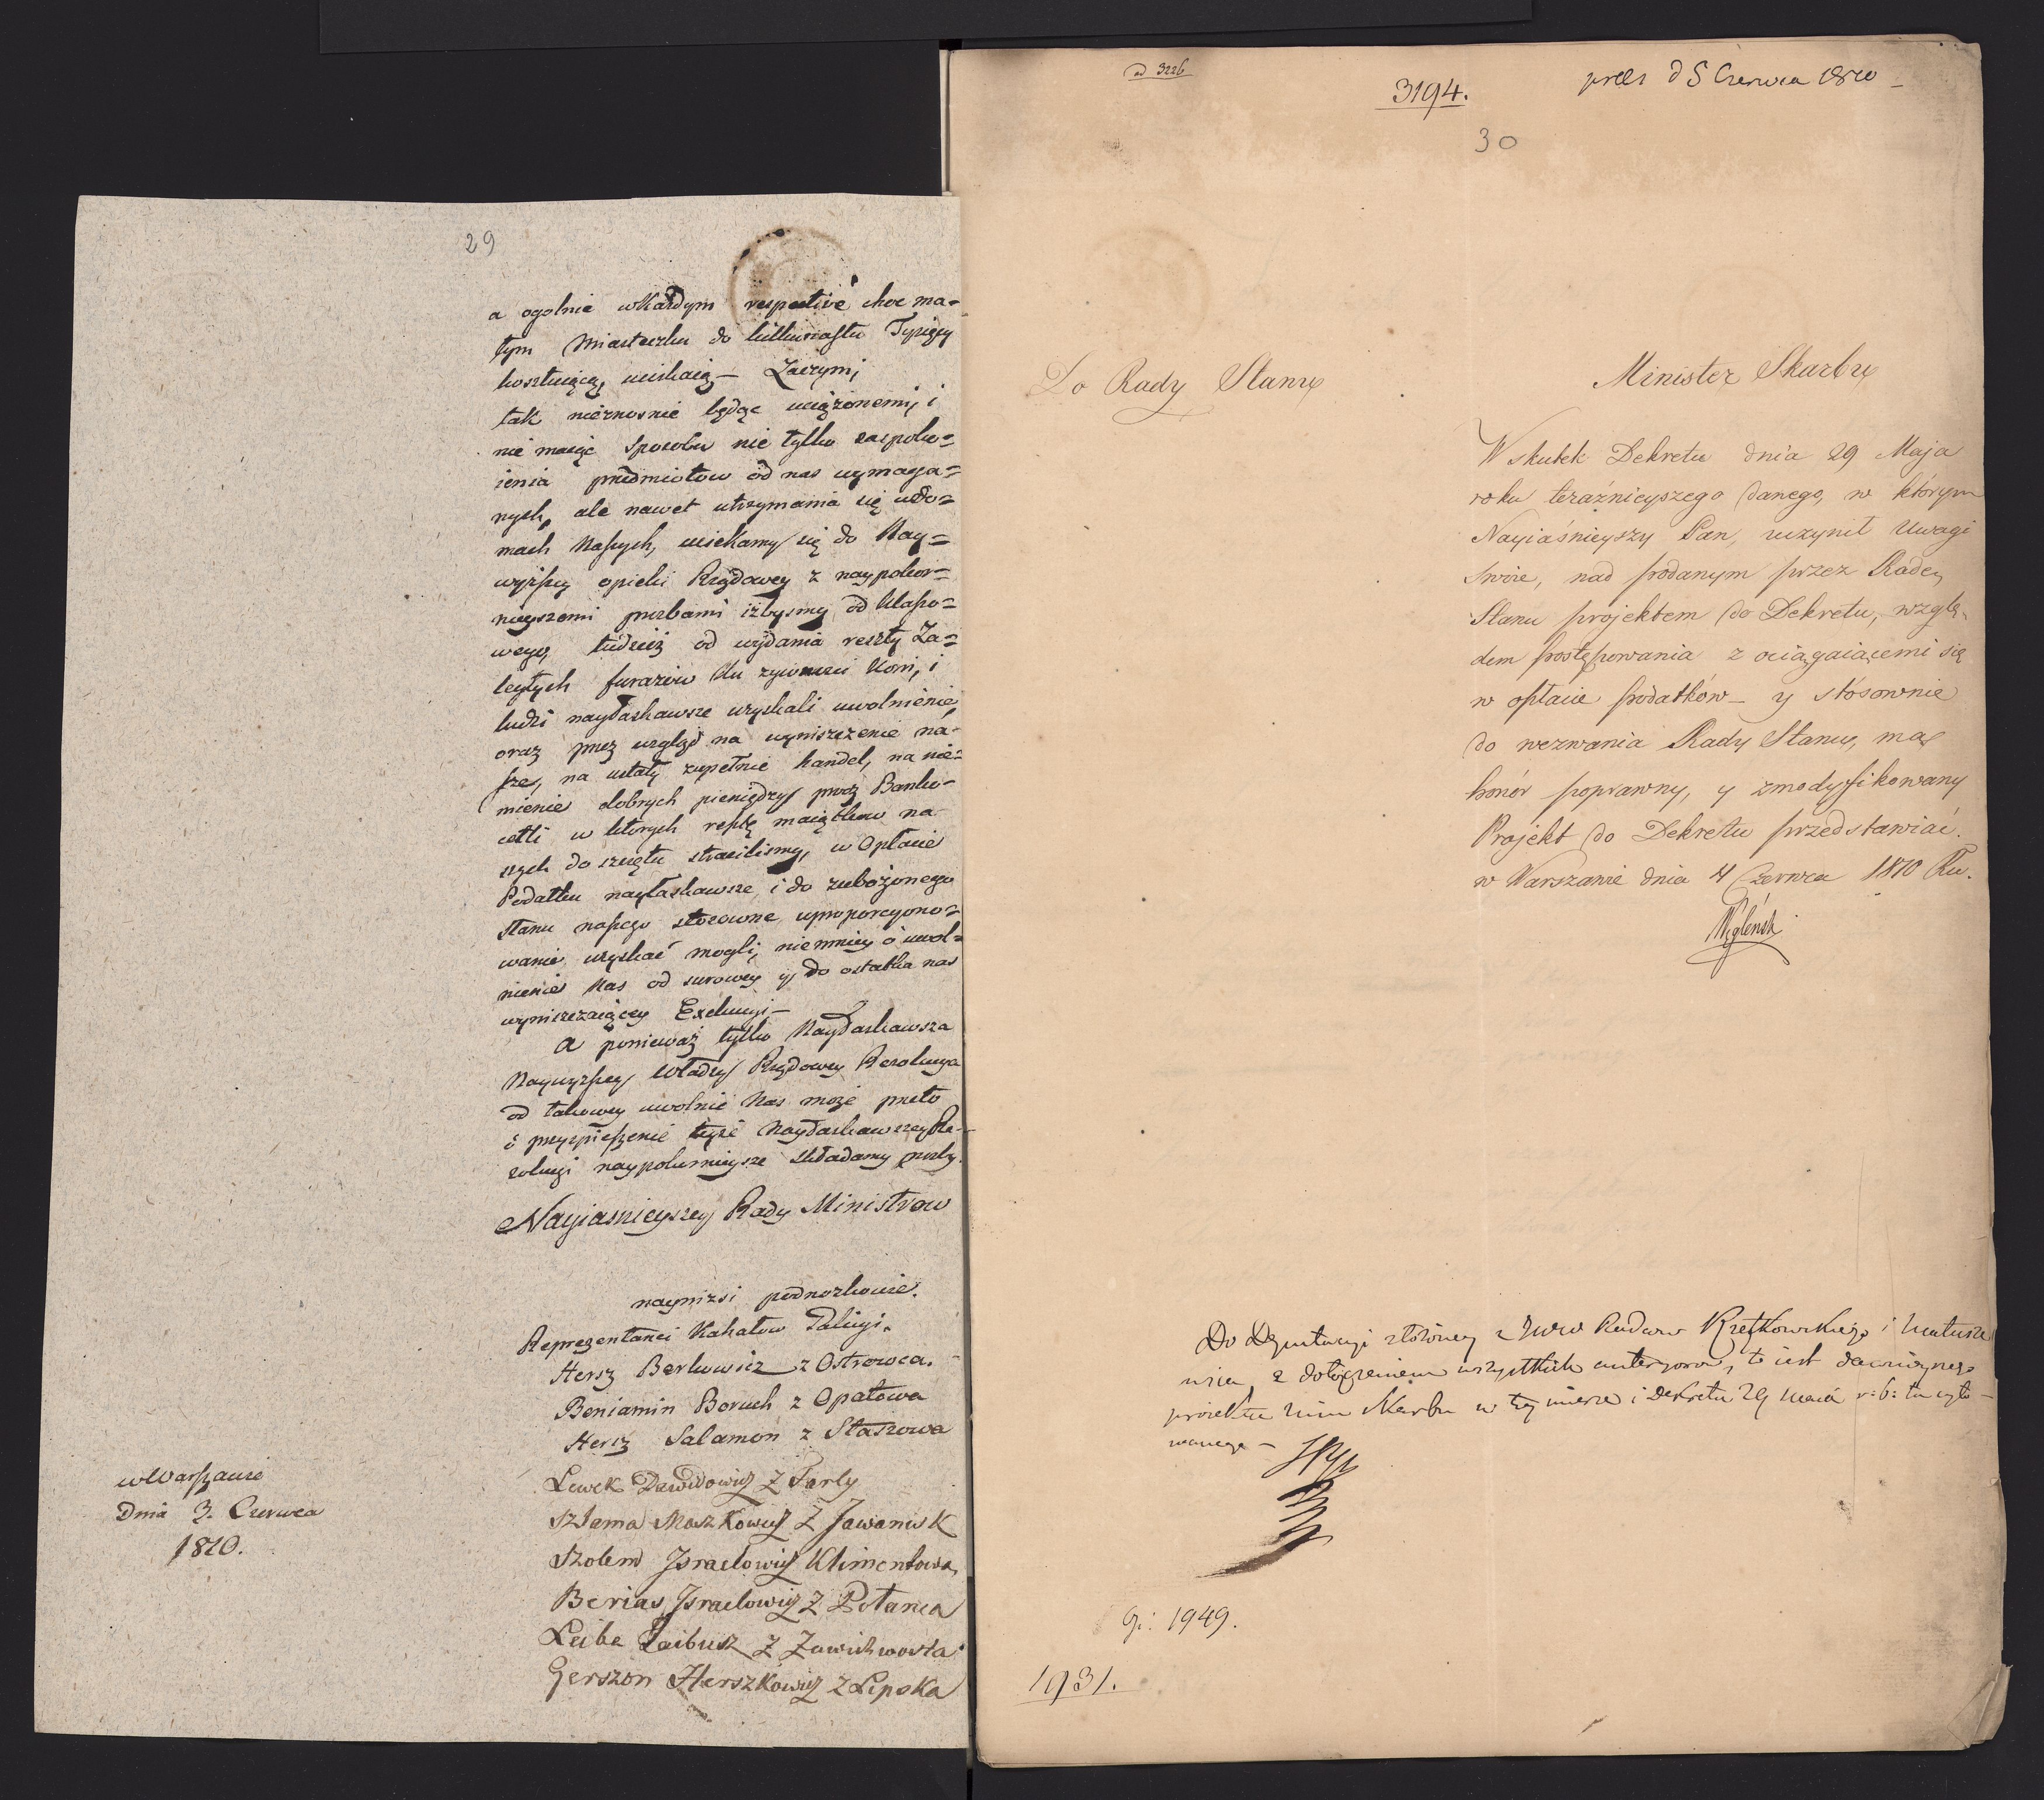 29
a ogolnie w Kazdym respective choc ma=
łym Miasteczku do kilkunastu Tysięcy
kosztuiącą, uciskaią — Zaczym,
tak nieznosnie będąc uciążonemi, i
nie maiąc sposobu nie tylko zaspoko=
ienia przedmiotow od nas wymaga=
nych, ale nawet utrzymania się w do=
mach Naszych, uciekamy się do Nay=
wyższey opieki Rządowey z naypokor=
nieyszemi prozbami izbysmy od
wego, tudzież od wydania reszty Za=
ległych furazow ku zywnosci Koni, i
ludzi nayłaskawsze uzyskali uwolnienie,
oraz przez wzgląd na wyniszczenie na=
sze, na ustały zupełnie handel, na nie=
mienie dobrych pieniędzy przez Banko=
cetli w ktorych resztę maiątkow na
szych do szczętu stracilismy, w Opłacie
Podatku nayłaskawsze i do zubożonego
stanu naszego stosowne uproporcyono=
wanie uzyskać mogli, niemniey o uwol=
nienie Nas od surowey y do ostatka nas
wyniszczaiącey Exekucyi —
A ponieważ tylko Nayłaskawsza
Naywyższey Władzy Rządowey Rezolucya
od takowey uwolnić Nas może przeto
o przyspieszenie teyże Nayłaskawszey Re=
zolucyi naypokornieysze składamy prozby.
Nayiasnieyszey Rady Ministrow
naynizsi podnozkowie.
Reprezentanci Kahałow Galicyi.
Hersz Berkowicz z Ostrowca.
Beniamin Boruch z Opatowa
Hersz Salamon z Staszowa
Lewek Dawidowicz z Tarły
Szlama Moszkowicz z Iwanisk
Szolem Jsraelowicz Klimentowa
Berias Jsraelowicz z Połanca
Leibe Laibusz z Zawichwosta
Gerszon Herszkowicz z Lipska
w Warszawie
Dnia 3. Czerwca
1810.
ad 3226
3194.
prez d 5 Czerwca 1810 —
30
Do Rady Stanu
Minister Skarbu
W skutek Dekretu dnia 29 Maja
roku teraźnieyszego danego, w którym
Nayiaśnieyszy Pan, uczynił Uwagi
swoie, nad podanym przez Radę
Stanu projektem do Dekretu, wzglę=
dem postępowania z ociągaiącemi się
w opłacie podatków — y stósownie
do wezwania Rady Stanu, mam
honór poprawny, y zmodyfikowany
Projekt do Dekretu przedstawiać.
w Warszawie dnia 4 Czerwca 1810 Ru.
Węgleński
Do Deputacyi złożoney z JWW Radców Krętkowskiego i Matusze
wica z dołączeniem wszystkich anteriorow, to iest dawnieyszego
proiektu Min Skarbu w tey mierze i Dekretu 29 Maia r: b: tu cyto=
wanego —
G: 1949.
1931.